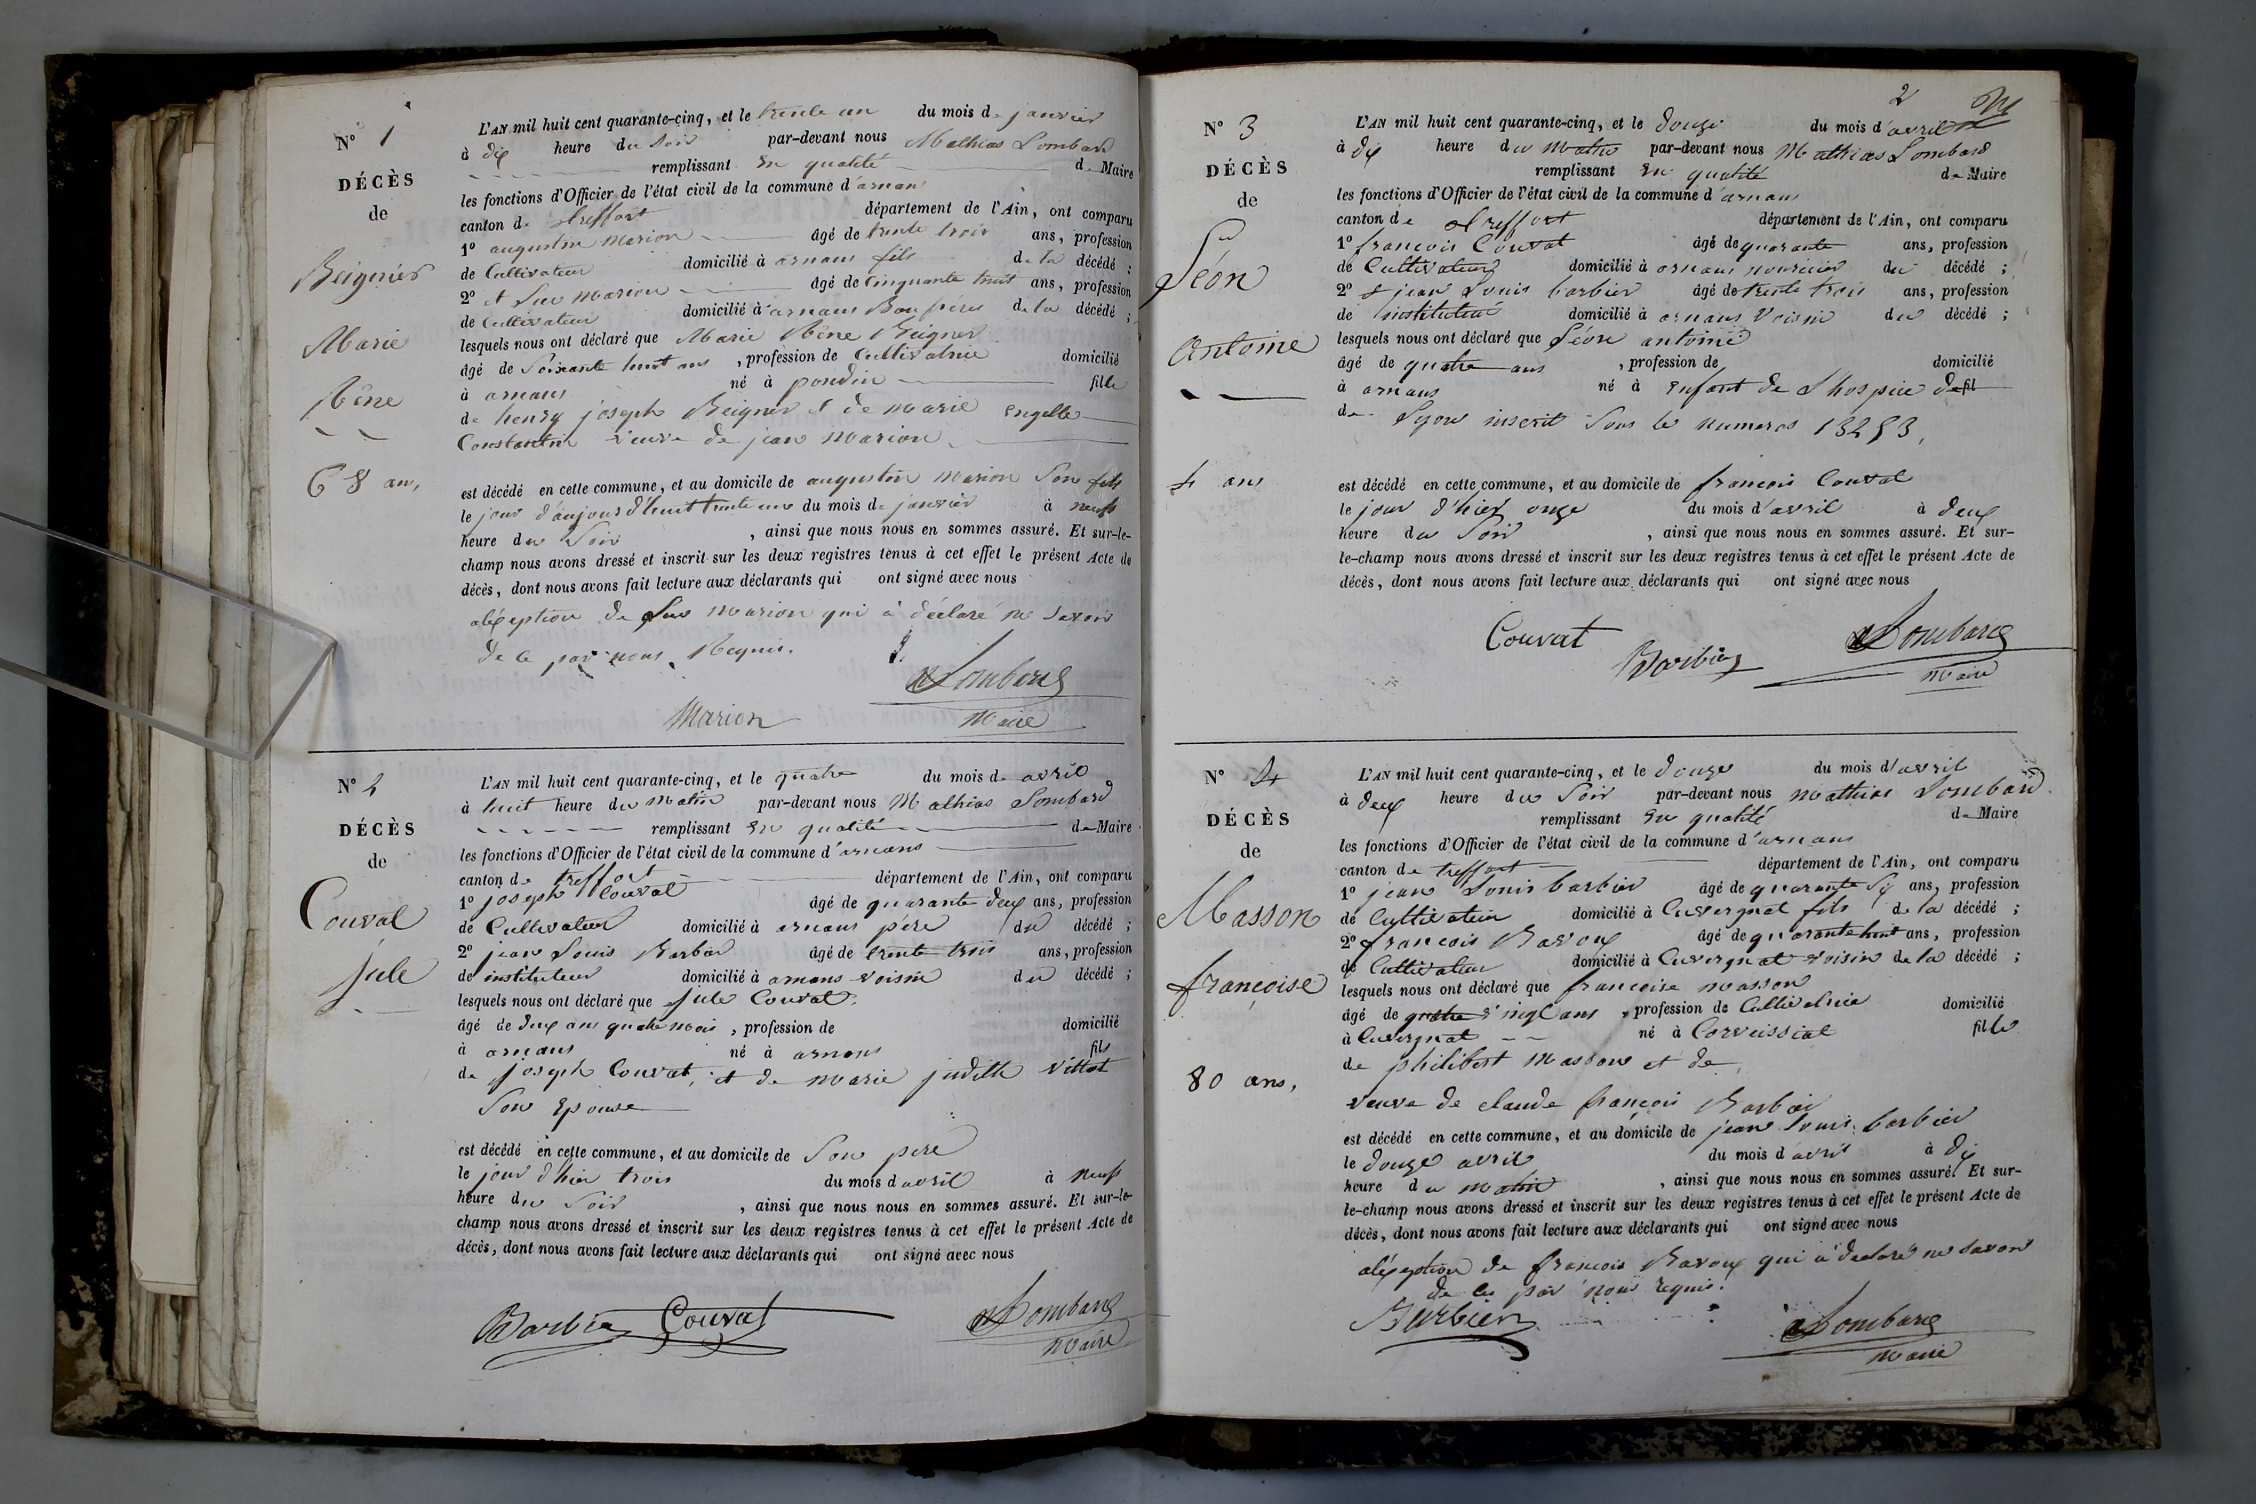 N° 1
DÉCÈS
de
Beignier
Marie
Rêne
68 ans,
L'AN mil huit cent quarante-cinq, et le trente un du mois de janvier
à dix heure du Soir par-devant nous Mathias Lombard
remplissant En qualité de Maire
les fonctions d'Officier de l'état civil de la commune d'arnans
canton de treffort département de l'Ain, ont comparu
1° augustin Marion âgé de trente trois ans, profession
de Cultivateur domicilié à arnans fils de la décédé ;
2° et Marion âgé de Cinquante huit ans, profession
de Cultivateur domicilié à arnans de la décédé ;
lesquels nous ont déclaré que Marie Rêne Beigner
âgé de Soixante huit ans, profession de Cultivatrice domicilié
à arnans né à poudin fille
de henry joseph Beigner et de Marie engelle
Constantin veuve de jean Marion
est décédé en cette commune, et au domicile de augustin Marion Son fils
le jour d'aujourd'huit trente un du mois de janvier à neufs
heure du Soir, ainsi que nous nous en sommes assuré. Et sur-le-
champ nous avons dressé et inscrit sur les deux registres tenus à cet effet le présent Acte de
décès, dont nous avons fait lecture aux déclarants qui ont signé avec nous
aléxeption de Marion qui à déclaré ne Savoir
de ce par nous Requis.
Lombard
Marion Maire
N° 2
DÉCÈS
de
Couvat
jule
L'AN mil huit cent quarante-cinq, et le quatre du mois de avril
à huit heure du Matin par-devant nous Mathias Lombard
remplissant En qualité de Maire
les fonctions d'Officier de l'état civil de la commune d'arnans
canton de treffort département de l'Ain, ont comparu
1° joseph Couvat âgé de quarante deux ans, profession
de Cultivateur domicilié à arnans père du décédé ;
2° jean Louis Barbier âgé de trente trois ans, profession
de instituteur domicilié à arnans voisin du décédé ;
lesquels nous ont déclaré que jule Couvat
âgé de deux ans quatre mois, profession de domicilié
à arnans né à arnans fils
de joseph Couvat, et de Marie judith Vittot
Son Epouse
est décédé en cette commune, et au domicile de Son père
le jour d'hier trois du mois d'avril à neufs
heure du Soir, ainsi que nous nous en sommes assuré. Et sur-le-
champ nous avons dressé et inscrit sur les deux registres tenus à cet effet le présent Acte de
décès, dont nous avons fait lecture aux déclarants qui ont signé avec nous
Barbier Couvat Lombard
Maire
2
N° 3
DÉCÈS
de
Léon
Antoine
4 ans
L'AN mil huit cent quarante-cinq, et le douze du mois d'avril
à dix heure du Matin par-devant nous Mathias Lombard
remplissant En qualité de Maire
les fonctions d'Officier de l'état civil de la commune d'arnans
canton de treffort département de l'Ain, ont comparu
1° francois Couvat âgé de quarante ans, profession
de Cultivateur domicilié à arnans nouricier du décédé ;
2° et jean Louis barbier âgé de trente trois ans, profession
de instituteur domicilié à arnans Voisin du décédé ;
lesquels nous ont déclaré que Léon antoine
âgé de quatre ans, profession de domicilié
à arnans né à enfant de Lhospice de fil
de Lyon inscrit Sous le numeros 13253,
est décédé en cette commune, et au domicile de francois Couvat
le jour d'hier onze du mois d'avril à deux
heure du Soir, ainsi que nous nous en sommes assuré. Et sur-
le-champ nous avons dressé et inscrit sur les deux registres tenus à cet effet le présent Acte de
décès, dont nous avons fait lecture aux déclarants qui ont signé avec nous
Couvat Barbier Lombard
Maire
N° 4
DÉCÈS
de
Masson
françoise
80 ans,
L'AN mil huit cent quarante-cinq, et le douze du mois d'avril
à deux heure du Soir par-devant nous Mathias Lombard
remplissant En qualité de Maire
les fonctions d'Officier de l'état civil de la commune d'arnans
canton de treffort département de l'Ain, ont comparu
1° jean Louis barbier âgé de quarante Six ans, profession
de Cultivateur domicilié à Cuvergnat fils de la décédé ;
2° francois Bavoux âgé de quarante huit ans, profession
de Cultivateur domicilié à Cuvergnat voisin de la décédé ;
lesquels nous ont déclaré que francoise Masson
âgé de quatre vingt ans, profession de Cultivatrice domicilié
à Cuvergnat né à Corveissiat fille
de philibert Masson et de
veuve de claude françois Barbier
est décédé en cette commune, et au domicile de jean Louis barbier
le douze avril du mois d'avril à dix
heure du matin, ainsi que nous nous en sommes assuré. Et sur-
le-champ nous avons dressé et inscrit sur les deux registres tenus à cet effet le présent Acte de
décès, dont nous avons fait lecture aux déclarants qui ont signé avec nous
aléxeption de francois Bavoux qui à déclaré ne Savoir
de ce par nous requis.
Barbier Lombard
Maire